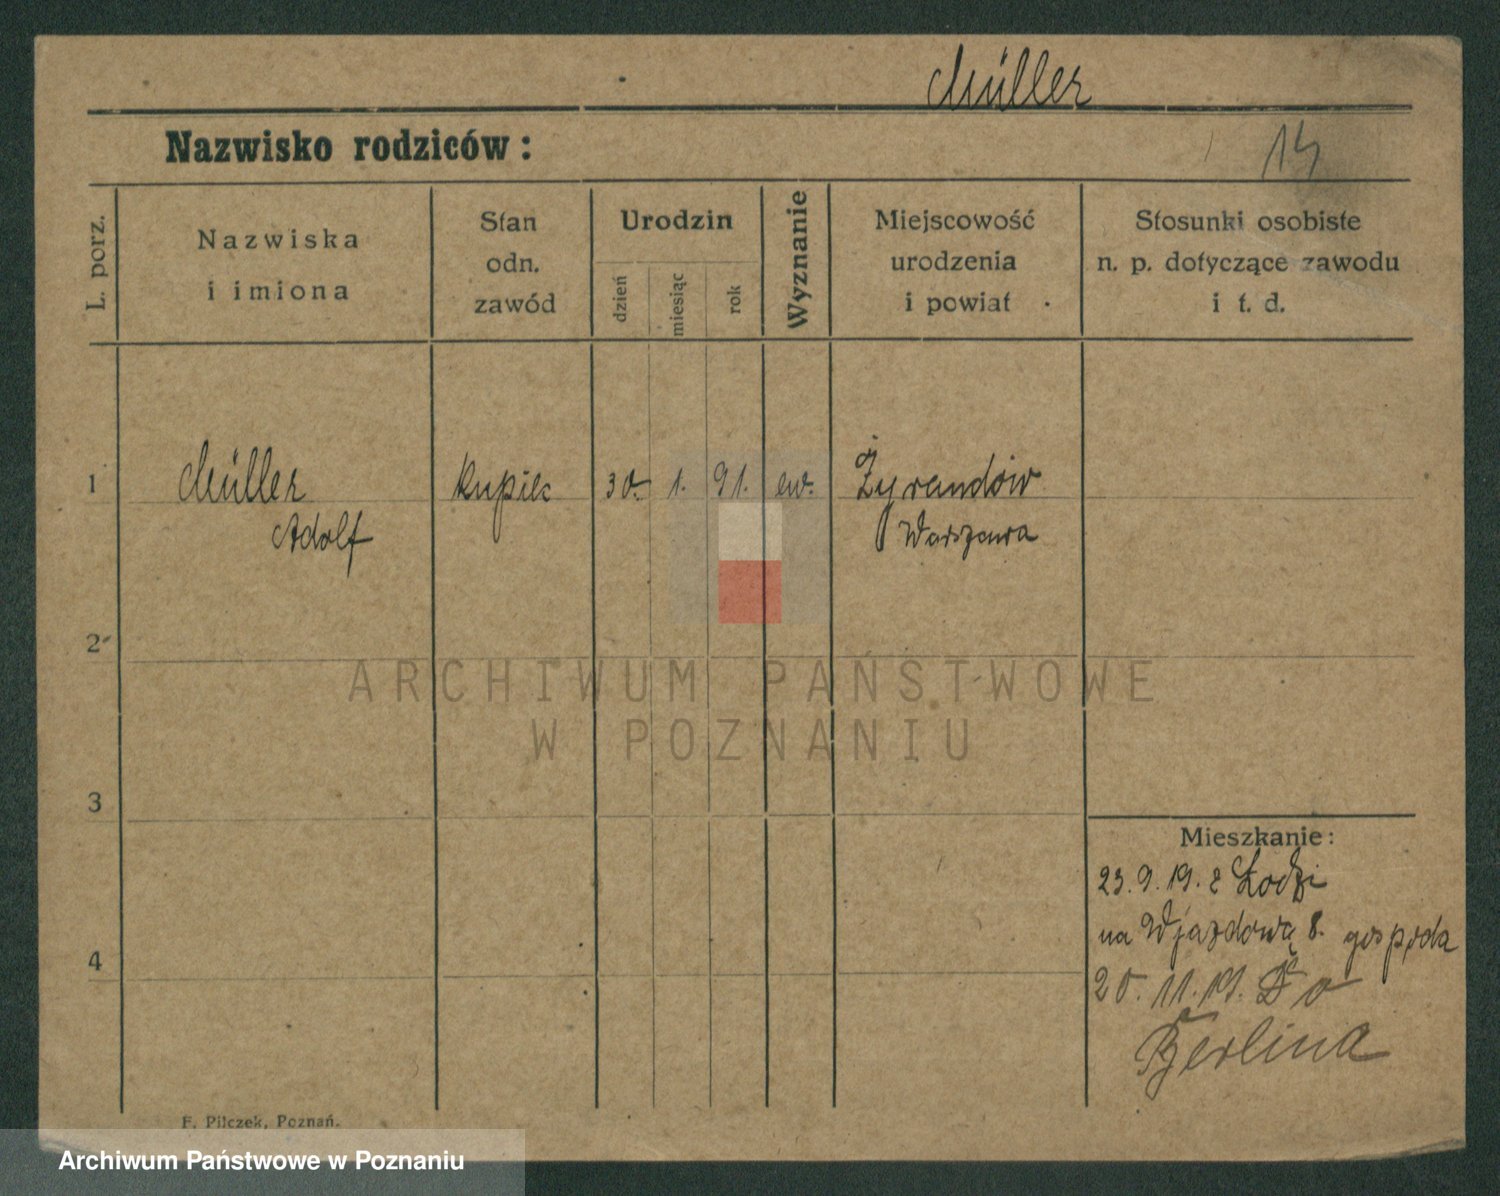 Müller
Nazwisko rodziców:
14
L. porz.
Nazwiska
i imiona
Stan
odn.
zawód
Urodzin
dzień
miesiąc
rok
Wyznanie
Miejscowość
urodzenia
i powiat
Stosunki osobiste
n. p. dotyczące zawodu
i t. d.
1
Müller
Adolf
kupiec
30. 1. 91.
ew.
Żyrandów
Warszawa
2
ARCHIWUM PAŃSTWOWE
W POZNANIU
3
Mieszkanie:
23.9.19. z Łodzi
na Wjazdową 8. gospoda
4
20.11.19. Do
Berlina
F. Pilczek, Poznań.
Archiwum Państwowe w Poznaniu